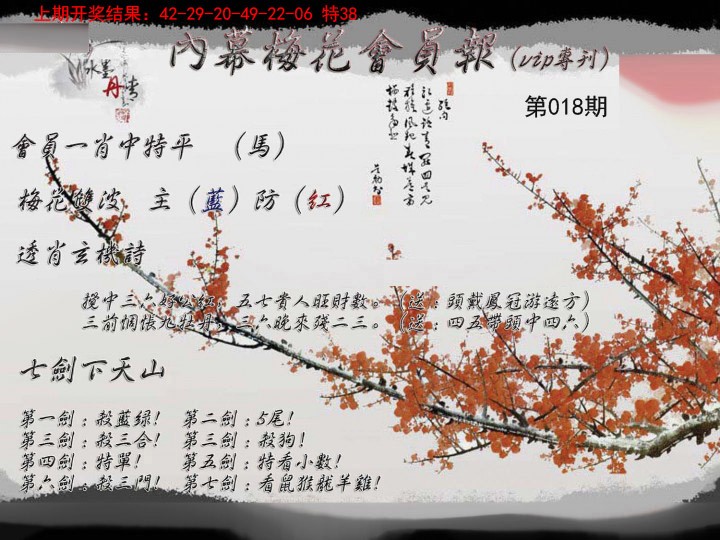 上期开奖结果：42-29-20-49-22-06 特38
內幕梅花會員報（vip專刊）
第018期
水墨
丹青
會員一肖中特平 （馬）
梅花雙波 主（藍）防（紅）
透肖玄機詩
授中三六好公紅，五七貴人旺財數。（送：頭戴鳳冠游遠方）
三前惆悵九牡丹，三六晚來殘二三。（送：四五帶頭中四六）
七劍下天山
第一劍：殺藍绿！ 第二劍：5尾！
第三劍：殺三合！ 第三劍：殺狗！
第四劍：特單！ 第五劍：特看小數！
第六劍：殺三門！ 第七劍：看鼠猴龍羊雞！